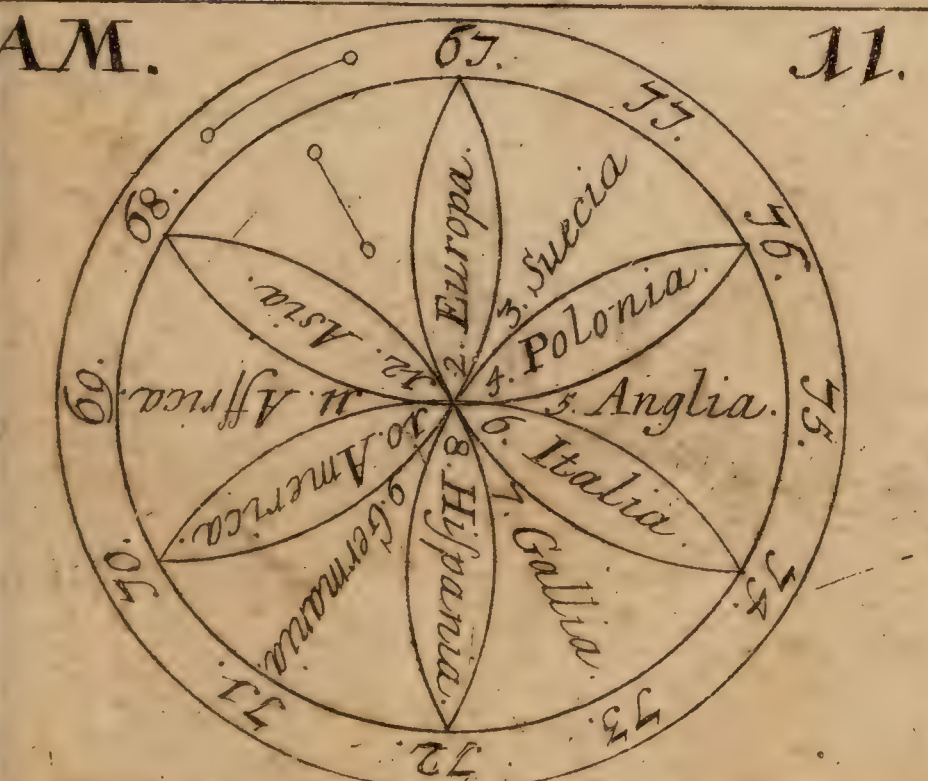 AM.
11.
67.
77.
76.
75.
74.
73.
72.
71.
70.
69.
68.
2. Europa.
3. Suecia
4. Polonia.
5. Anglia.
6. Italia.
7. Gallia.
8. Hiſpania.
9. Germania.
10. America.
11. Affrica.
12. Asia.